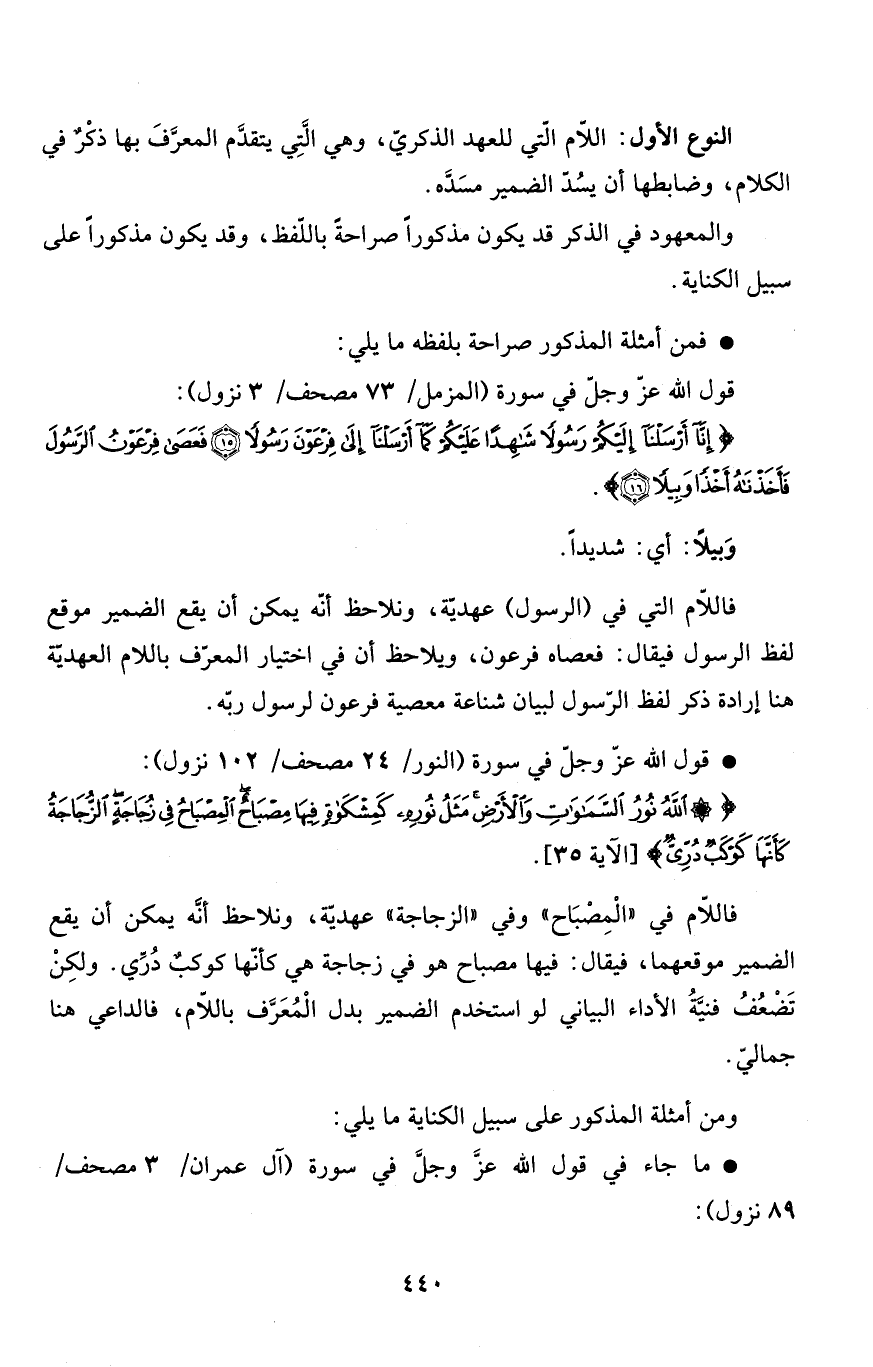 النوع الأول: اللاّم الّتي للعهد الذكريّ، وهي الَّتِي يتقدَّم المعرَّفَ بها ذكْرٌ في
الكلام، وضابطها أن يسُدّ الضمير مسَدَّه.
والمعهود في الذكر قد يكون مذكوراً صراحةً باللّفظ، وقد يكون مذكوراً على
سبيل الكناية.
● فمن أمثلة المذكور صراحة بلفظه ما يلي:
قول الله عزّ وجلّ في سورة (المزمل/ ٧٣ مصحف/ ٣ نزول):
﴿ إِنَّآ أَرْسَلْنَآ إِلَيْكُمْ رَسُولًا شَٰهِدًا عَلَيْكُمْ كَمَآ أَرْسَلْنَآ إِلَىٰ فِرْعَوْنَ رَسُولًا ۝١٥ فَعَصَىٰ فِرْعَوْنُ ٱلرَّسُولَ
فَأَخَذْنَٰهُ أَخْذًا وَبِيلًا ۝١٦﴾.
وَبيلاً: أي: شديداً.
فاللاّم التي في (الرسول) عهديّة، ونلاحظ أنّه يمكن أن يقع الضمير موقع
لفظ الرسول فيقال: فعصاه فرعون، ويلاحظ أن في اختيار المعرّف باللام العهديّة
هنا إرادة ذكر لفظ الرّسول لبيان شناعة معصية فرعون لرسول ربّه.
● قول الله عزّ وجلّ في سورة (النور/ ٢٤ مصحف/ ١٠٢ نزول):
﴿ ۞ ٱللَّهُ نُورُ ٱلسَّمَٰوَٰتِ وَٱلْأَرْضِ ۚ مَثَلُ نُورِهِۦ كَمِشْكَوٰةٍ فِيهَا مِصْبَاحٌ ۖ ٱلْمِصْبَاحُ فِى زُجَاجَةٍ ۖ ٱلزُّجَاجَةُ
كَأَنَّهَا كَوْكَبٌ دُرِّىٌّ﴾ [الآية ٣٥].
فاللاّم في «الْمِصْبَاح» وفي «الزجاجة» عهديّة، ونلاحظ أنَّه يمكن أن يقع
الضمير موقعهما، فيقال: فيها مصباح هو في زجاجة هي كأنّها كوكبٌ دُرِّي. ولكِنْ
تَضْعُفُ فنيَّةُ الأداء البياني لو استخدم الضمير بدل الْمُعَرَّف باللاّم، فالداعي هنا
جماليّ.
ومن أمثلة المذكور على سبيل الكناية ما يلي:
● ما جاء في قول الله عزَّ وجلَّ في سورة (آل عمران/ ٣ مصحف/
٨٩ نزول):
٤٤٠